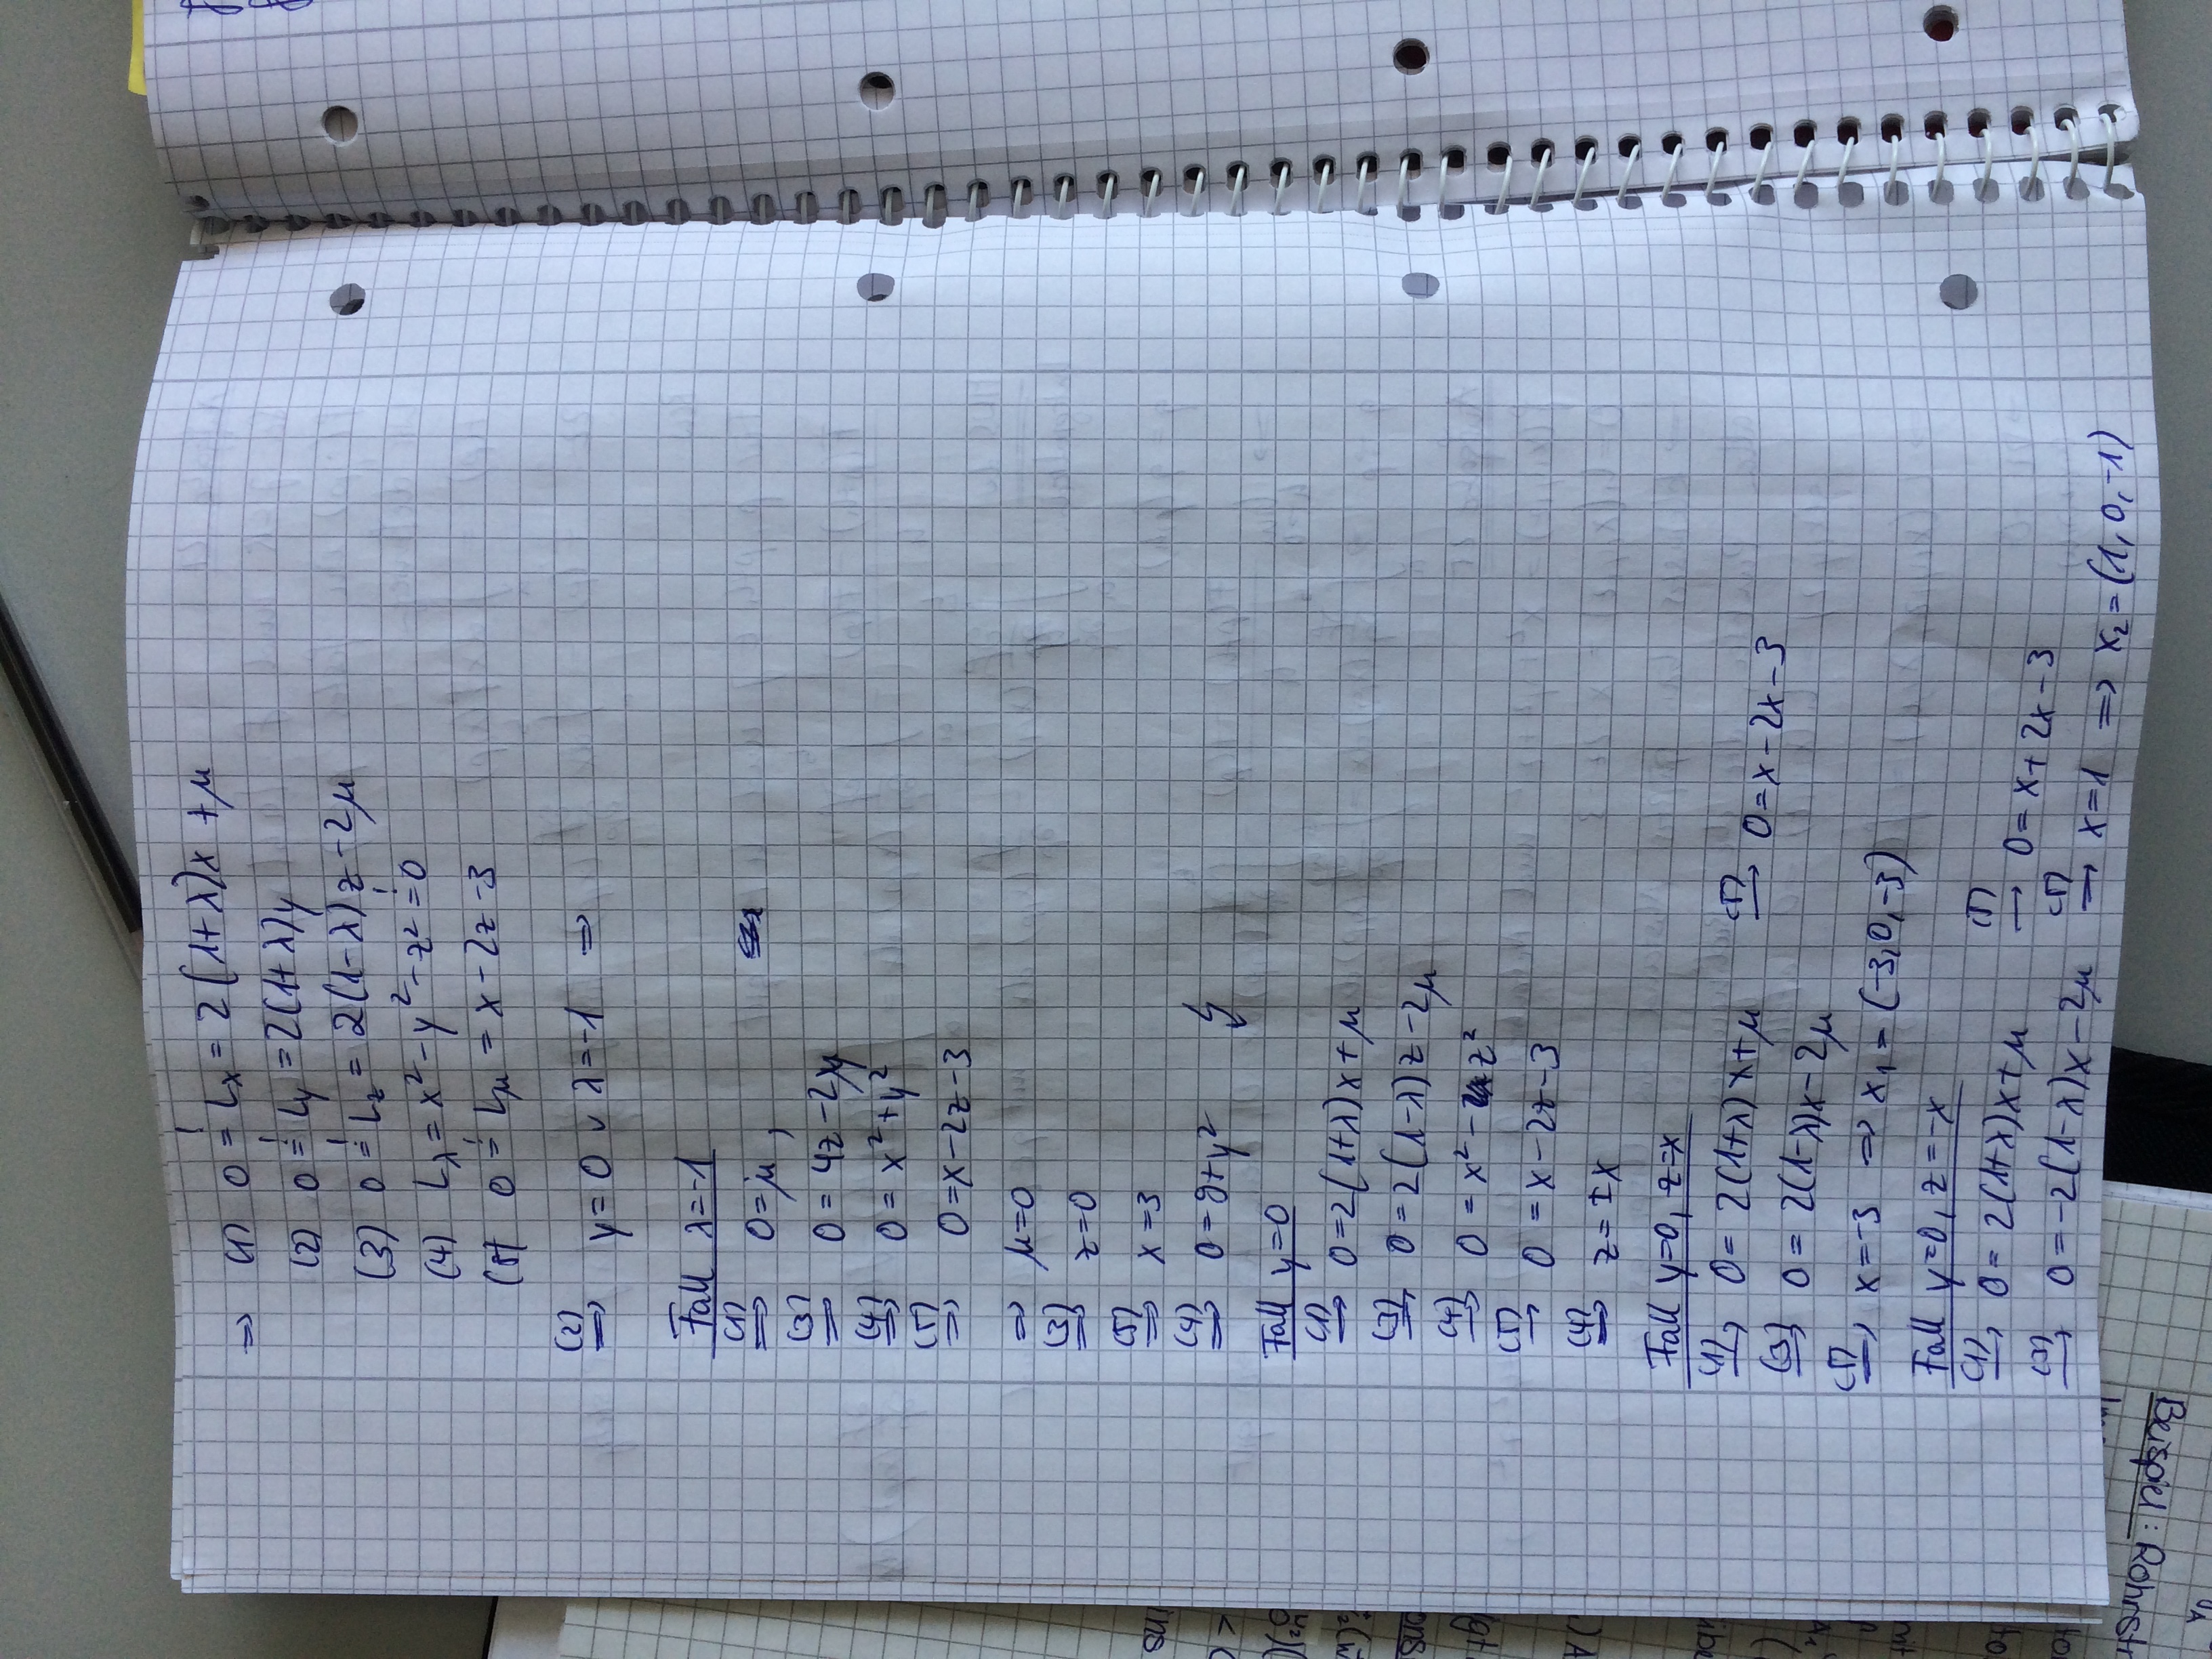 ⇒ (1) 0 =! Lx = 2(1+λ)x + μ
(2) 0 =! Ly = 2(1+λ)y
(3) 0 =! Lz = 2(1-λ)z - 2μ
(4) Lλ = x² - y² - z² =! 0
(5) 0 =! Lμ = x - 2z - 3
(2) ⇒ y = 0 ∨ λ = -1 ⇒
Fall λ = -1
(1) ⇒ 0 = μ,
(3) ⇒ 0 = 4z - 2μ
(4) ⇒ 0 = x² + y²
(5) ⇒ 0 = x - 2z - 3
⇒ μ = 0
(3) ⇒ z = 0
(5) ⇒ x = 3
(4) ⇒ 0 = 9 + y² ↯
Fall y = 0
(1) ⇒ 0 = 2(1+λ)x + μ
(3) ⇒ 0 = 2(1-λ)z - 2μ
(4) ⇒ 0 = x² - z²
(5) ⇒ 0 = x - 2z - 3
(4) ⇒ z = ±x
Fall y = 0, z = x
(1) ⇒ 0 = 2(1+λ)x + μ (5) ⇒ 0 = x - 2x - 3
(3) ⇒ 0 = 2(1-λ)x - 2μ
(5) ⇒ x = -3 ⇒ x₁ = (-3, 0, -3)
Fall y = 0, z = -x
(1) ⇒ 0 = 2(1+λ)x + μ (5) ⇒ 0 = x + 2x - 3
(3) ⇒ 0 = -2(1-λ)x - 2μ (5) ⇒ x = 1 ⇒ x₂ = (1, 0, -1)
Beispiel: Rohrstr